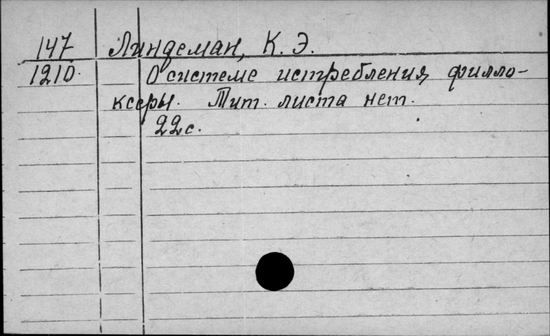 147 Линдеман, К. Э.
1210. О системе истребления филло-
ксеры. Тит. листа нет.
22 с.